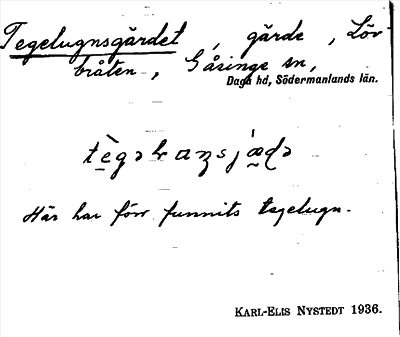 Tegelugnsgärdet, gärde, Löv
bråten, Gåsinge sn,
Daga hd, Södermanlands län.
Här har förr funnits tegelugn.
KARL-ELIS NYSTEDT 1936.